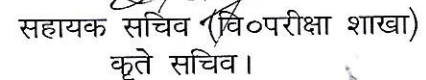 सहायक सचिव (वि०परीक्षा शाखा)
कृते सचिव।